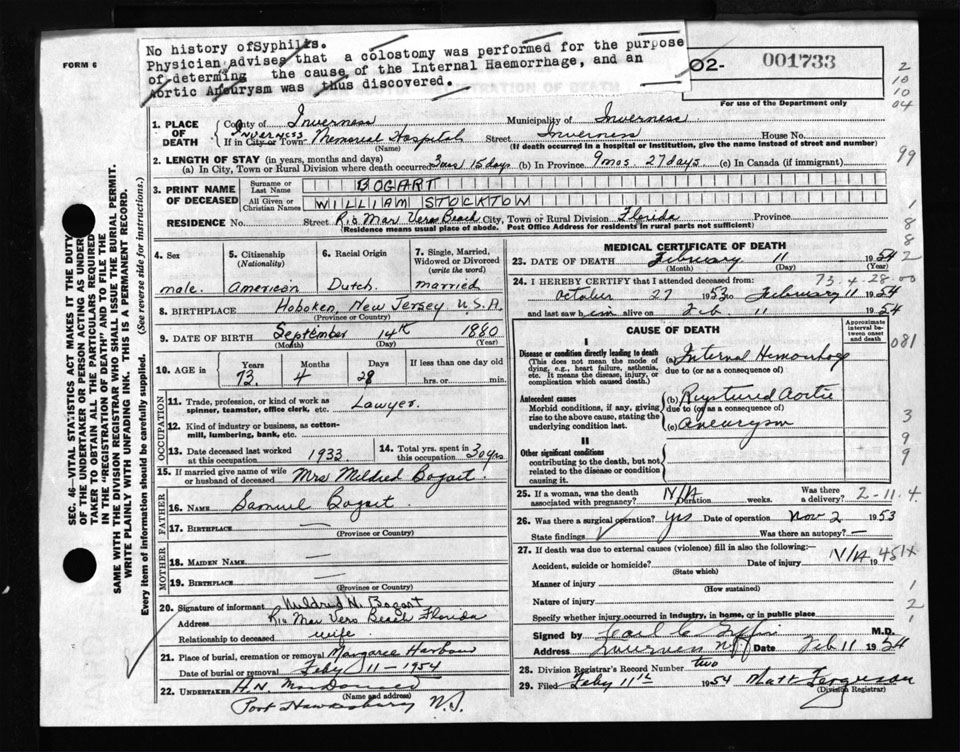 No history ofSyphilis.
Physician advises that a colostomy was performed for the purpose
of determing the cause of the Internal Haemorrhage, and an
Aortic Aneurysm was thus discovered.
FORM 6
02- 001733
For use of the Department only
2
10
10
04
1. PLACE OF DEATH
County of Inverness Municipality of Inverness
If in City or Town Inverness Memorial Hospital Street Inverness House No.
(Name) (If death occurred in a hospital or institution, give the name instead of street and number)
2. LENGTH OF STAY (in years, months and days)
(a) In City, Town or Rural Division where death occurred 3mos 15days (b) In Province 9mos. 27days. (c) In Canada (if immigrant)
99
3. PRINT NAME OF DECEASED
Surname or Last Name BOGART
All Given or Christian Names WILLIAM STOCKTON
RESIDENCE No. Street Rio Mar Vero Beach City, Town or Rural Division Florida Province
(Residence means usual place of abode. Post Office Address for residents in rural parts not sufficient)
1
8
8
2
4. Sex
male.
5. Citizenship (Nationality)
American
6. Racial Origin
Dutch.
7. Single, Married, Widowed or Divorced (write the word)
married
8. BIRTHPLACE Hoboken, New Jersey U.S.A.
(Province or Country)
9. DATE OF BIRTH September 14th 1880
(Month) (Day) (Year)
10. AGE in Years Months Days If less than one day old
73. 4 28 hrs. or min.
OCCUPATION
11. Trade, profession, or kind of work as spinner, teamster, office clerk, etc. Lawyer.
12. Kind of industry or business, as cotton-mill, lumbering, bank, etc.
13. Date deceased last worked at this occupation 1933
14. Total yrs. spent in this occupation 30yrs
15. If married give name of wife or husband of deceased Mrs Mildred Bogart
FATHER
16. NAME Samuel Bogart
17. BIRTHPLACE —
(Province or Country)
MOTHER
18. MAIDEN NAME —
19. BIRTHPLACE —
(Province or Country)
20. Signature of informant Mildred N. Bogart
Address Rio Mar Vero Beach Florida
Relationship to deceased wife
21. Place of burial, cremation or removal Margaree Harbour
Date of burial or removal Feby 11-1954
22. UNDERTAKER
(Name and address)
Port Hawkesbury N.S.
MEDICAL CERTIFICATE OF DEATH
23. DATE OF DEATH February 11 1954
(Month) (Day) (Year)
73-4-28-00
24. I HEREBY CERTIFY that I attended deceased from:
October 27 1953 to February 11 1954
and last saw him alive on Feb 11 1954
CAUSE OF DEATH
Approximate interval between onset and death
081
I
Disease or condition directly leading to death
(This does not mean the mode of dying, e.g., heart failure, asthenia, etc. It means the disease, injury, or complication which caused death.)
(a) Internal Hemorrhage
due to (or as a consequence of)
Antecedent causes
Morbid conditions, if any, giving rise to the above cause, stating the underlying condition last.
(b) Ruptured Aortic
due to (or as a consequence of)
(c) Aneurysm
3
9
9
II
Other significant conditions
contributing to the death, but not related to the disease or condition causing it.
25. If a woman, was the death associated with pregnancy? N/A Duration weeks. Was there a delivery?
2-11-4
26. Was there a surgical operation? yes Date of operation Nov 2 1953
State findings Was there an autopsy?
27. If death was due to external causes (violence) fill in also the following:—
Accident, suicide or homicide? Date of injury N/A
(State which)
451X
Manner of injury
(How sustained)
Nature of injury
Specify whether injury occurred in industry, in home, or in public place
1
2
1
Signed by M.D.
Address Inverness NS Date Feb 11 1954
28. Division Registrar's Record Number two
29. Filed Feby 11th 1954 Matt Ferguson
(Division Registrar)
SEC. 46—VITAL STATISTICS ACT MAKES IT THE DUTY
OF THE UNDERTAKER OR PERSON ACTING AS UNDER
TAKER TO OBTAIN ALL THE PARTICULARS REQUIRED
IN THE "REGISTRATION OF DEATH" AND TO FILE THE
SAME WITH THE DIVISION REGISTRAR WHO SHALL ISSUE THE BURIAL PERMIT.
WRITE PLAINLY WITH UNFADING INK. THIS IS A PERMANENT RECORD.
Every item of information should be carefully supplied. (See reverse side for instructions.)